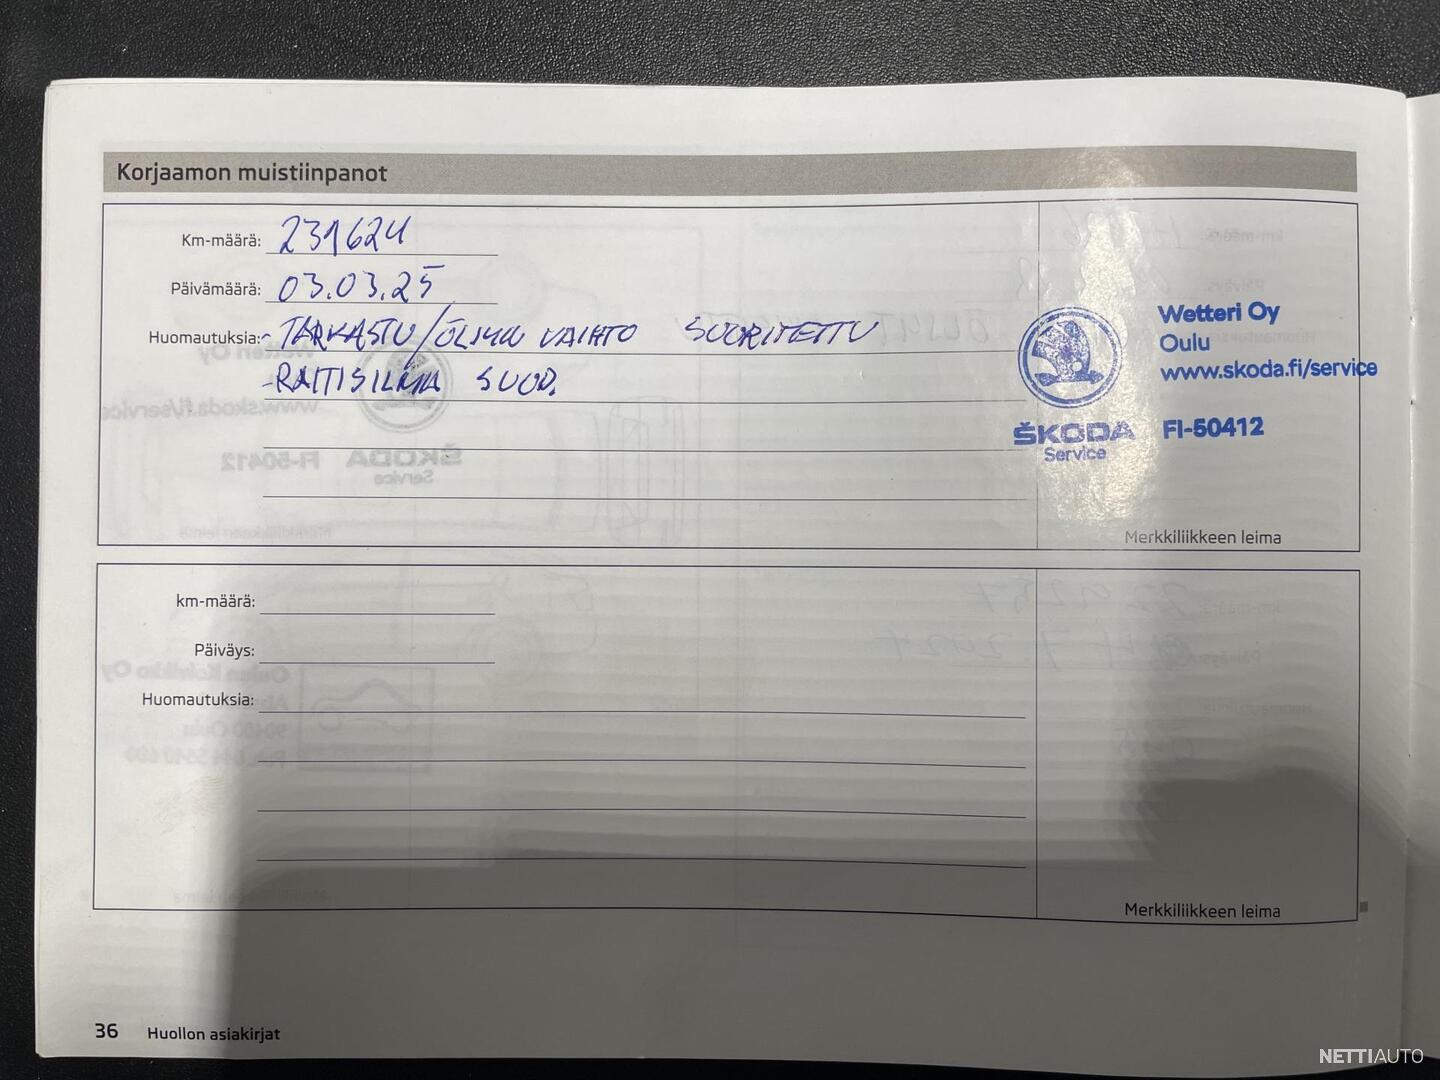 Korjaamon muistiinpanot
Km-määrä: 231624
Päivämäärä: 03.03.25
Huomautuksia: - TARKASTU/ÖLJYN VAIHTO SUORITETTU
- RAITISILMA SUOD.
Wetteri Oy
Oulu
www.skoda.fi/service
ŠKODA FI-50412
Service
Merkkiliikkeen leima
km-määrä:
Päiväys:
Huomautuksia:
Merkkiliikkeen leima
36 Huollon asiakirjat
NETTIAUTO